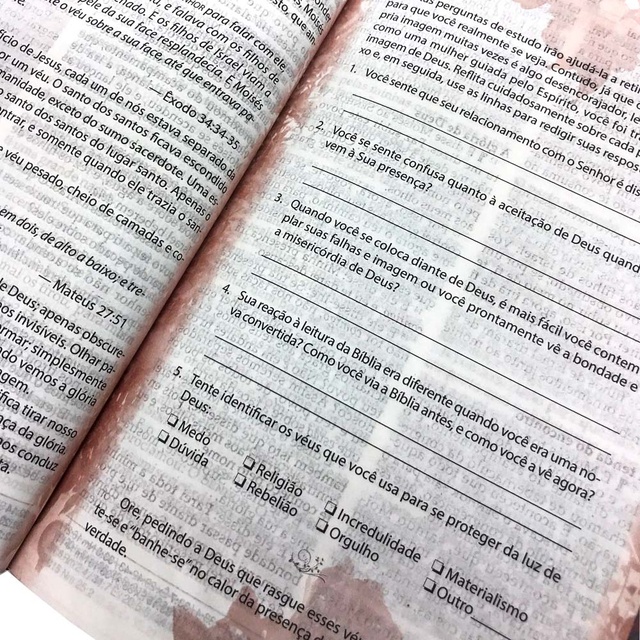 SENHOR para falar com ele,
e falava com os filhos de
nado. E os filhos de Israel viam
pele da sua face resplandecia. E Moisés
o véu sobre a sua face, até que entrava pa-
—Êxodo 34.34-35
fício de Jesus, cada um de nós estava separado de
or um véu. O santo dos santos ficava escondido
manidade, exceto do sumo sacerdote. Uma es-
o santo dos santos do lugar santo. Apenas o
entrar, e somente quando ele trazia o san-
véu pesado, cheio de camadas e co-
em dois, de alto a baixo; e tre-
—Mateus 27:51
de Deus; apenas obscure-
nos invisíveis. Olhar pa-
ormar simplesmente
ndo vemos a glória
agem.
fica tirar nosso
ça da glória
nos conduz
ra.
perguntas de estudo irão ajudá-la a
para que você realmente se veja. Contudo, já que
pria imagem muitas vezes é algo desencorajador,
como uma mulher guiada pelo Espírito, você foi
imagem de Deus. Reflita cuidadosamente sobre cada
xo e, em seguida, use as linhas para redigir suas
1. Você sente que seu relacionamento com o Senhor é
2. Você se sente confusa quanto à aceitação de Deus
vem à Sua presença?
3. Quando você se coloca diante de Deus, é mais fácil você contem-
plar suas falhas e imagem ou você prontamente vê a bondade e
a misericórdia de Deus?
4. Sua reação à leitura da Bíblia era diferente quando você era uma no-
va convertida? Como você via a Bíblia antes, e como você a vê agora?
5. Tente identificar os véus que você usa para se proteger da luz de
Deus:
❑ Medo ❑ Religião ❑ Incredulidade ❑ Materialismo
❑ Dúvida ❑ Rebelião ❑ Orgulho ❑ Outro
Ore, pedindo a Deus que rasgue esses véus
te-se e "banhe-se" no calor da presença
verdade.